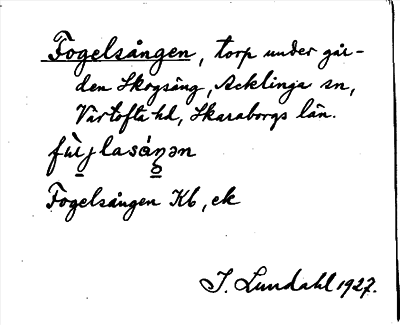 Fogelsången, torp under går-
den Skogsäng, Acklinga sn,
Vartofta hd, Skaraborgs län.
fùg̣lasáŋən
Fogelsången Kb, ek
I. Lundahl 1927.